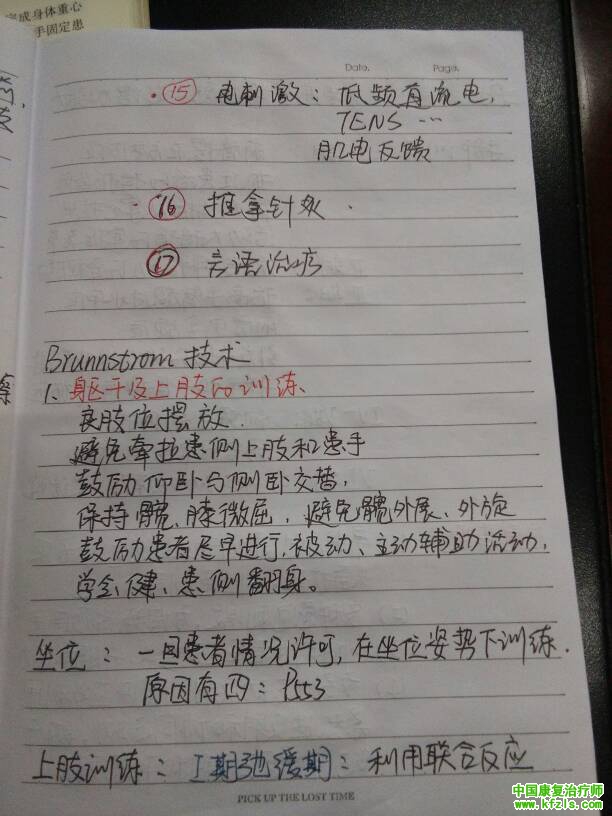 完成身体重心
手固定患
Date.
Page.
⑮ 电刺激：低频直流电，
TENS …
肌电反馈
⑯ 推拿针灸.
⑰ 言语治疗
Brunnstrom 技术
1、躯干及上肢的训练、
良肢位摆放.
避免牵拉患侧上肢和患手
鼓励仰卧与侧卧交替，
保持髋、膝微屈，避免髋外展、外旋
鼓励患者尽早进行，被动、主动辅助活动，
学会健、患侧翻身。
坐位：一旦患者情况许可，在坐位姿势下训练.
原因有四：P553
上肢训练：I期弛缓期：利用联合反应
PICK UP THE LOST TIME
中国康复治疗师
www.kfzls.com